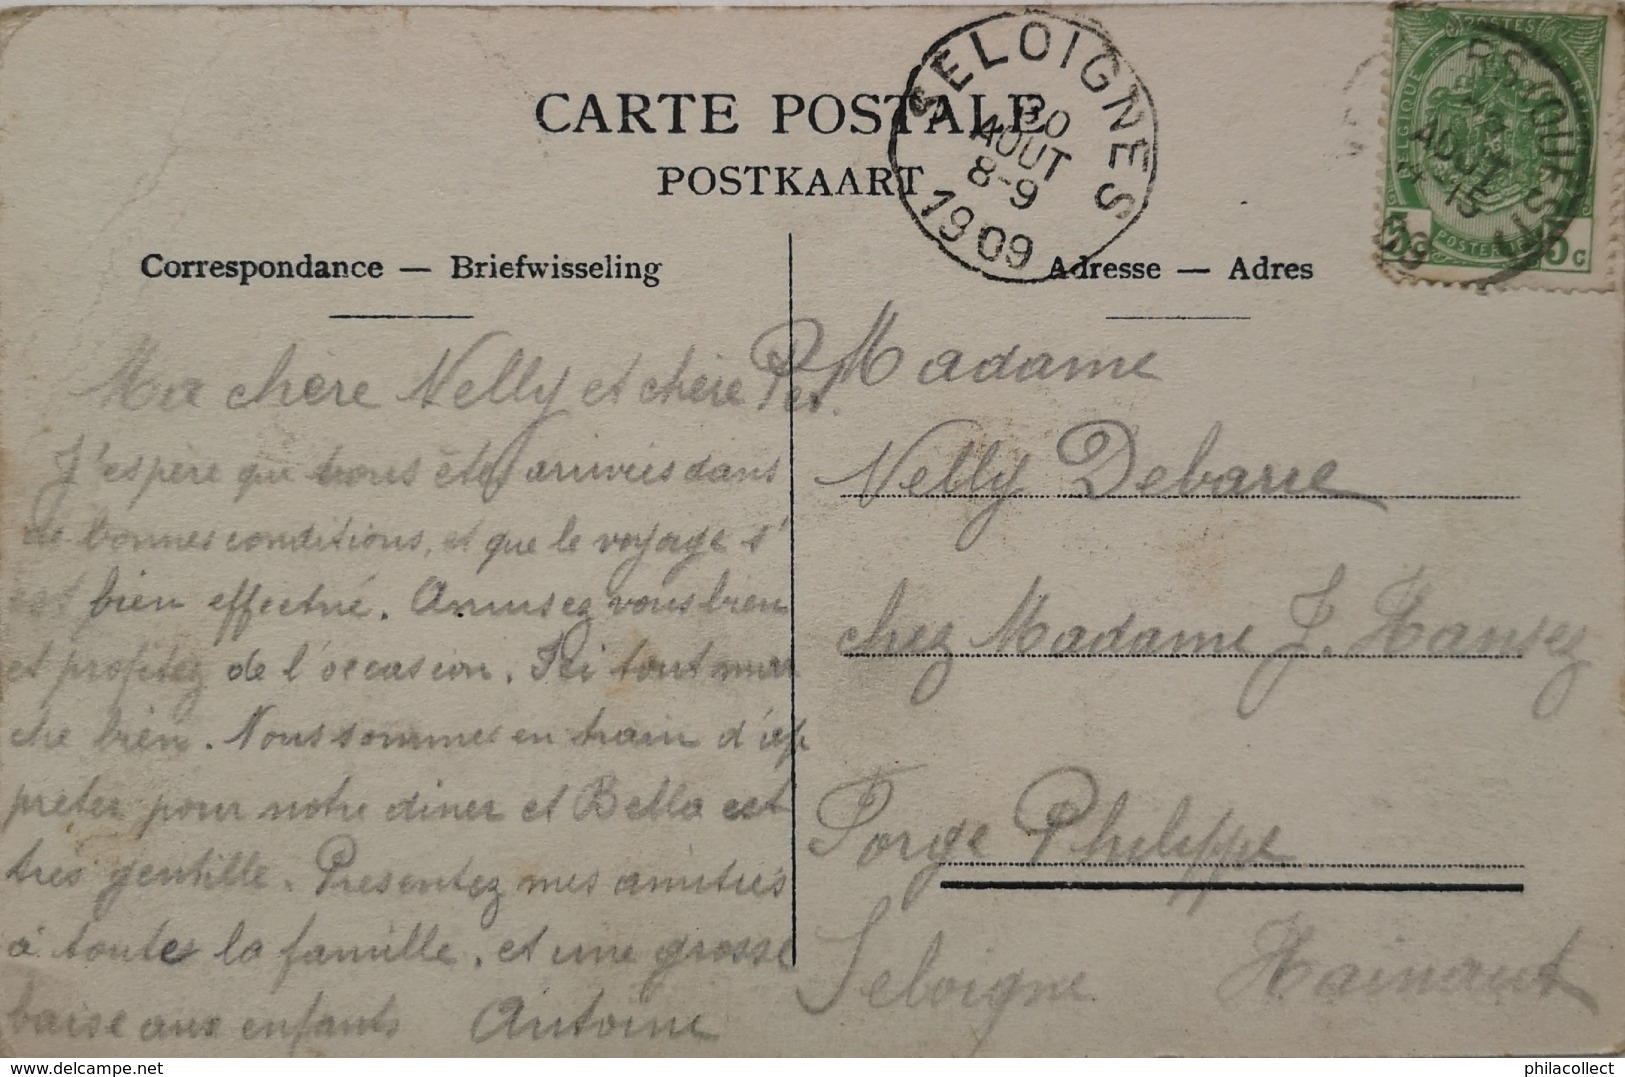 CARTE POSTALE
POSTKAART
SELOIGNES
30
AOUT
8-9
1909
POSTES
BELGIQUE
AOUT
POSTERIJEN
5 5c
Correspondance — Briefwisseling
Adresse — Adres
Ma chère Nelly et chère
J'espère que vous êtes arrivées dans
de bonnes conditions, et que le voyage s'
est bien effectué. Amusez vous bien
et profitez de l'occasion. Ici tout mar
che bien. Nous sommes en train d'ap
prêter pour notre diner et Bella est
très gentille. Presentez mes amitiés
à toute la famille. et une grosse
baise aux enfants Antoine
Madame
Nelly Debarre
chez Madame J. Hansez
Forge Philippe
Seloigne Hainaut
delcampe.net
philacollect